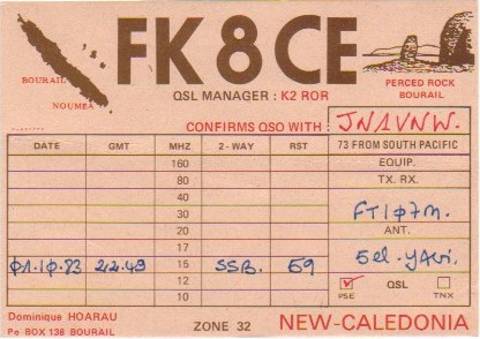 FK8CE
BOURAIL
NOUMEA
QSL MANAGER : K2 ROR
PERCED ROCK
BOURAIL
CONFIRMS QSO WITH : JN1VNW.
DATE GMT MHZ 2-WAY RST 73 FROM SOUTH PACIFIC
160 EQUIP.
80 TX. RX.
40
30 FT1Ø7M.
20 ANT.
17
Ø1.1Ø.83 22.49 15 SSB. 59 5el-YAGI.
12 PSE QSL TNX
10
Dominique HOARAU
Po BOX 136 BOURAIL
ZONE 32
NEW-CALEDONIA